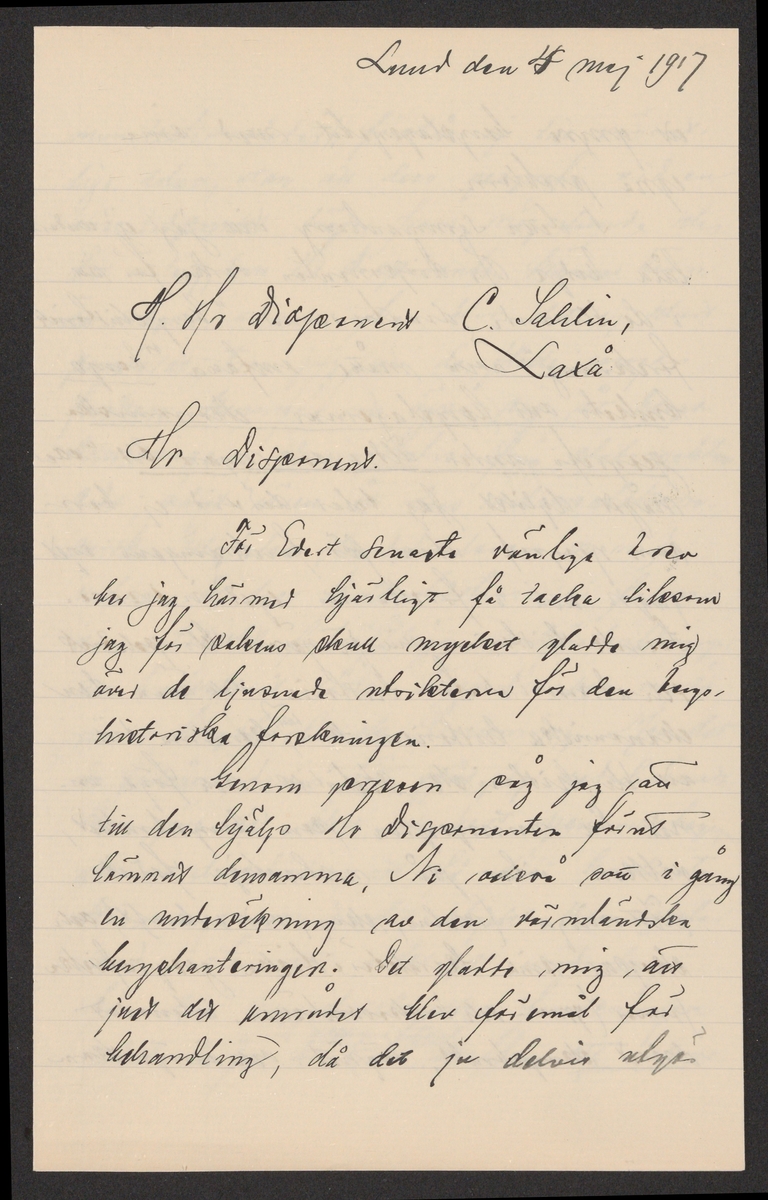 Lund den 4 maj 1917
H. Hr Disponent C. Sahlin,
Laxå
Hr Disponent.
För Edert senaste vänliga brev
ber jag härmed hjärtligt få tacka liksom
jag för sakens skull mycket gladde mig
över de ljusnade utsikterna för den bergs-
historiska forskningen.
Genom pressen såg jag, att
till den hjälp Hr Disponenten förut
lämnat densamma, Ni också satt i gång
en undersökning av den värmländska
bergshanteringen. Det gladde mig, att
just det området blev föremål för
behandling, då det ju delvis utgö-